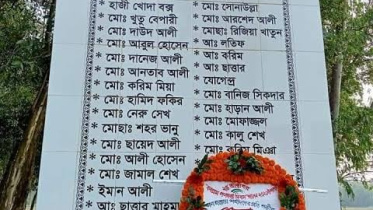 * হাজী খোদা বক্স
* মোঃ খুতু বেপারী
* মোঃ দাউদ আলী
* মোঃ আবুল হোসেন
* মোঃ দানেজ আলী
* মোঃ আনতাব আলী
* মোঃ করিম মিয়া
* মোঃ হামিদ ফকির
* মোঃ নেরু সেখ
* মোছাঃ শহর ভানু
* মোঃ ছায়েদ আলী
* মোঃ আলী হোসেন
* মোঃ জামাল শেখ
* ইমান আলী
* আঃ ছাত্তার মাহমুদ
* মোঃ সোনাউল্লা
* মোঃ আরশেদ আলী
* মোছাঃ রিজিয়া খাতুন
* আঃ লতিফ
* আঃ করিম
* আঃ ছাত্তার
* যোগেন্দ্র
* মোঃ বানিজ সিকদার
* মোঃ হাড়ান আলী
* মোঃ মোফাজ্জল
* মোঃ কালু শেখ
* মোঃ করিম মিঞা